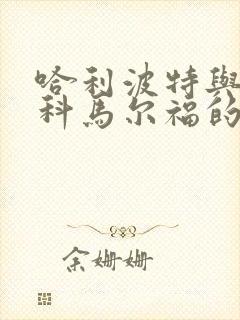 哈利波特與
科馬尔福的
余姗姗